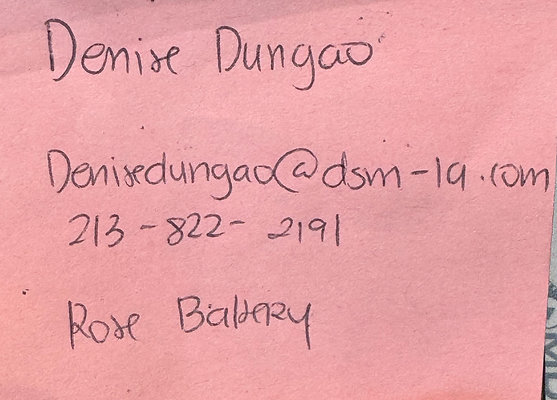 Denise Dungao
Denisedungao@dsm-la.com
213-822-2191
Rose Bakery